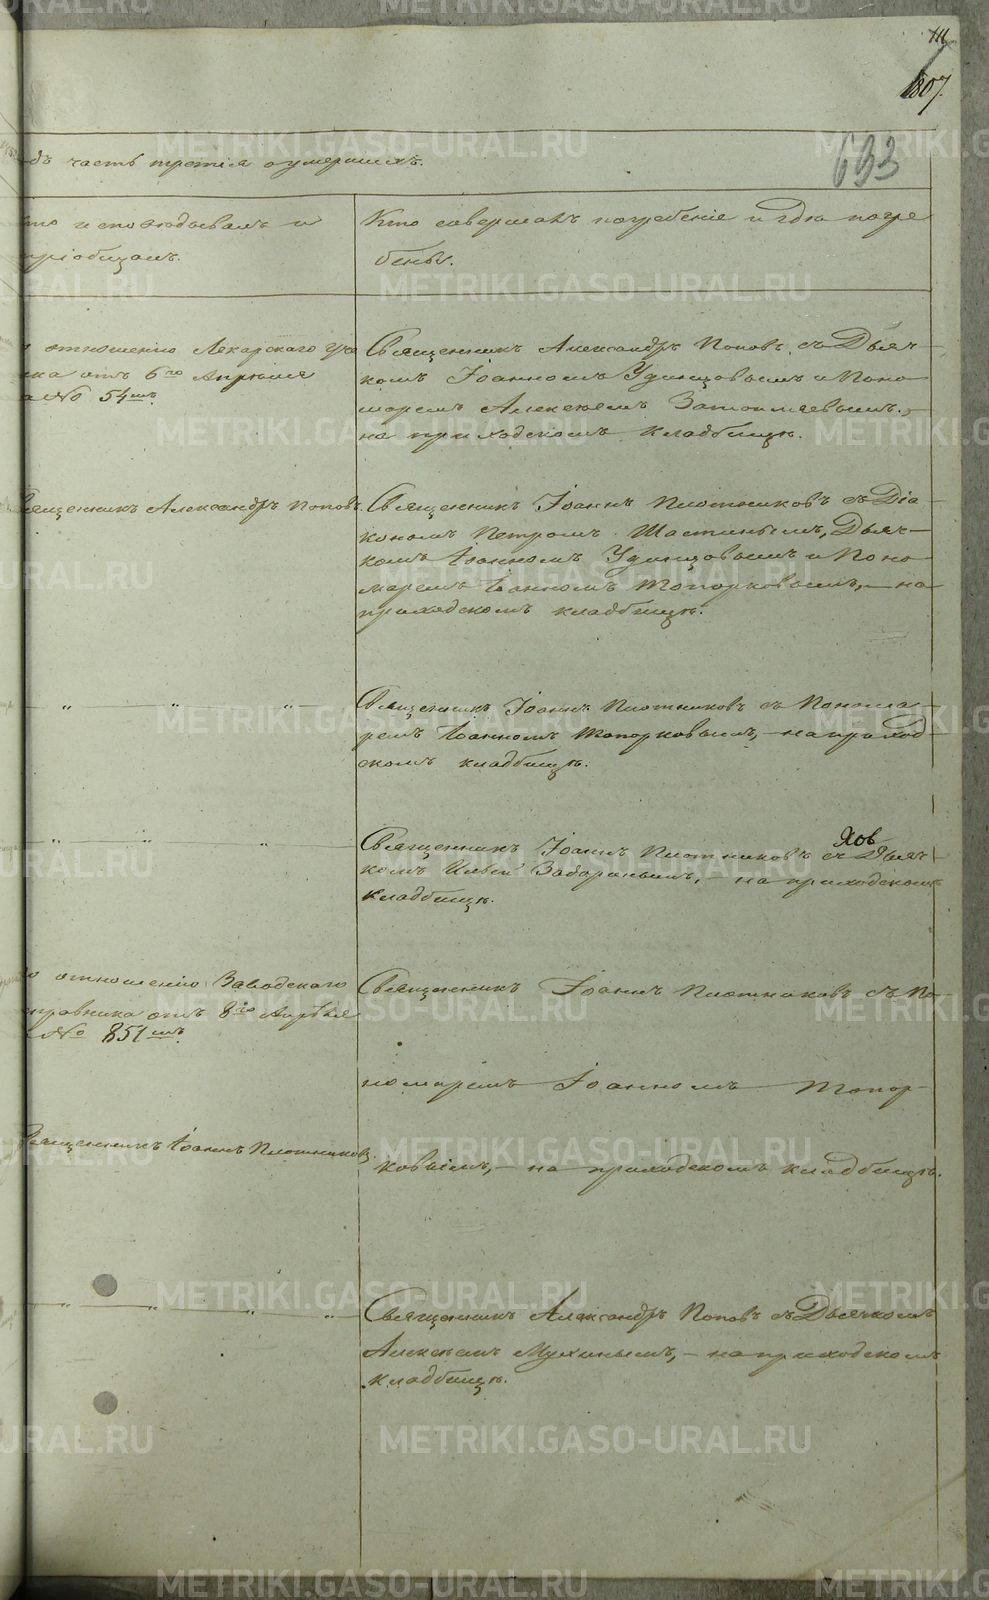 111
1807.
693
дъ часть третія о умершихъ.
то исповѣдывалъ и
пріобщалъ.
Кто совершалъ погребеніе и гдѣ погре
бены.
отношенію Лекарскаго Уче
ика отъ 6го Апрѣля
а № 54мъ
Священникъ Александръ Поповъ съ Дьяч-
комъ Іоанномъ Удинцовымъ и Поно
маремъ Алексѣемъ
на приходскомъ кладбищѣ.
вященникъ Александръ Поповъ.
Священникъ Іоаннъ Плотниковъ съ Діа-
кономъ Петромъ Шастинымъ, Дьяч-
комъ Іоанномъ Удинцовымъ и Поно
маремъ Іоанномъ Топорковымъ, – на
приходскомъ кладбищѣ.
Священникъ Іоаннъ Плотниковъ съ Понома-
ремъ Іоанномъ Топорковымъ, – на приход-
скомъ кладбищѣ.
Священникъ Іоаннъ Плотниковъ съ Дьяч-
комъ Ильей – на приходскомъ
кладбищѣ.
о отношенію Заводскаго
справника отъ 8го Апрѣля
№ 851мъ
Священникъ Іоаннъ Плотниковъ съ По-
номаремъ Іоанномъ Топор-
ковымъ, – на приходскомъ кладбищѣ.
вященникъ Іоаннъ Плотниковъ.
Священникъ Александръ Поповъ съ Дьячкомъ
Алексѣемъ Мухинымъ, – на приходскомъ
кладбищѣ.
METRIKI.GASO-URAL.RU